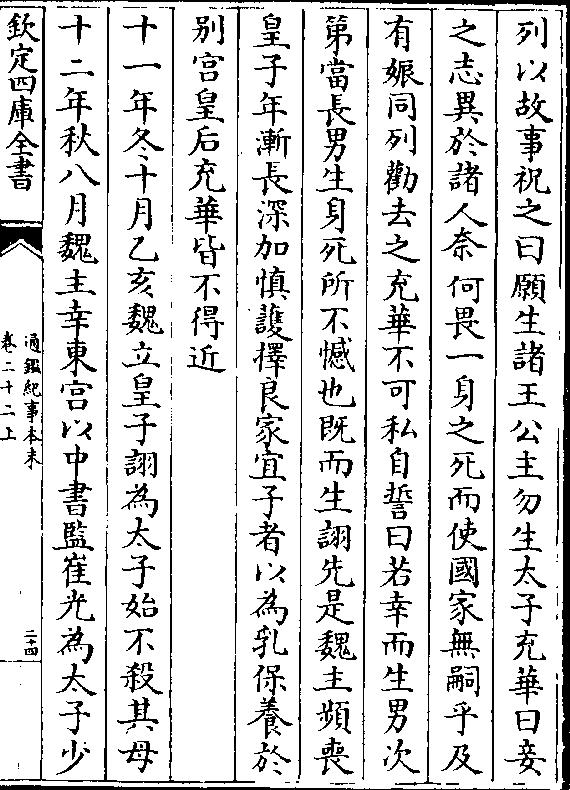 列以故事祝之曰願生諸王公主勿生太子充華曰妾
之志異於諸人奈何畏一身之死而使國家無嗣乎及
有娠同列勸去之充華不可私自誓曰若幸而生男次
第當長男生身死所不憾也既而生詡先是魏主頻喪
皇子年漸長深加慎護擇良家宜子者以為乳保養於
别宫皇后充華皆不得近
十一年冬十月乙亥魏立皇子詡為太子始不殺其母
十二年秋八月魏主幸東宫以中書監崔光為太子少
欽定四庫全書
通鑑紀事本末
卷二十二上
二十四